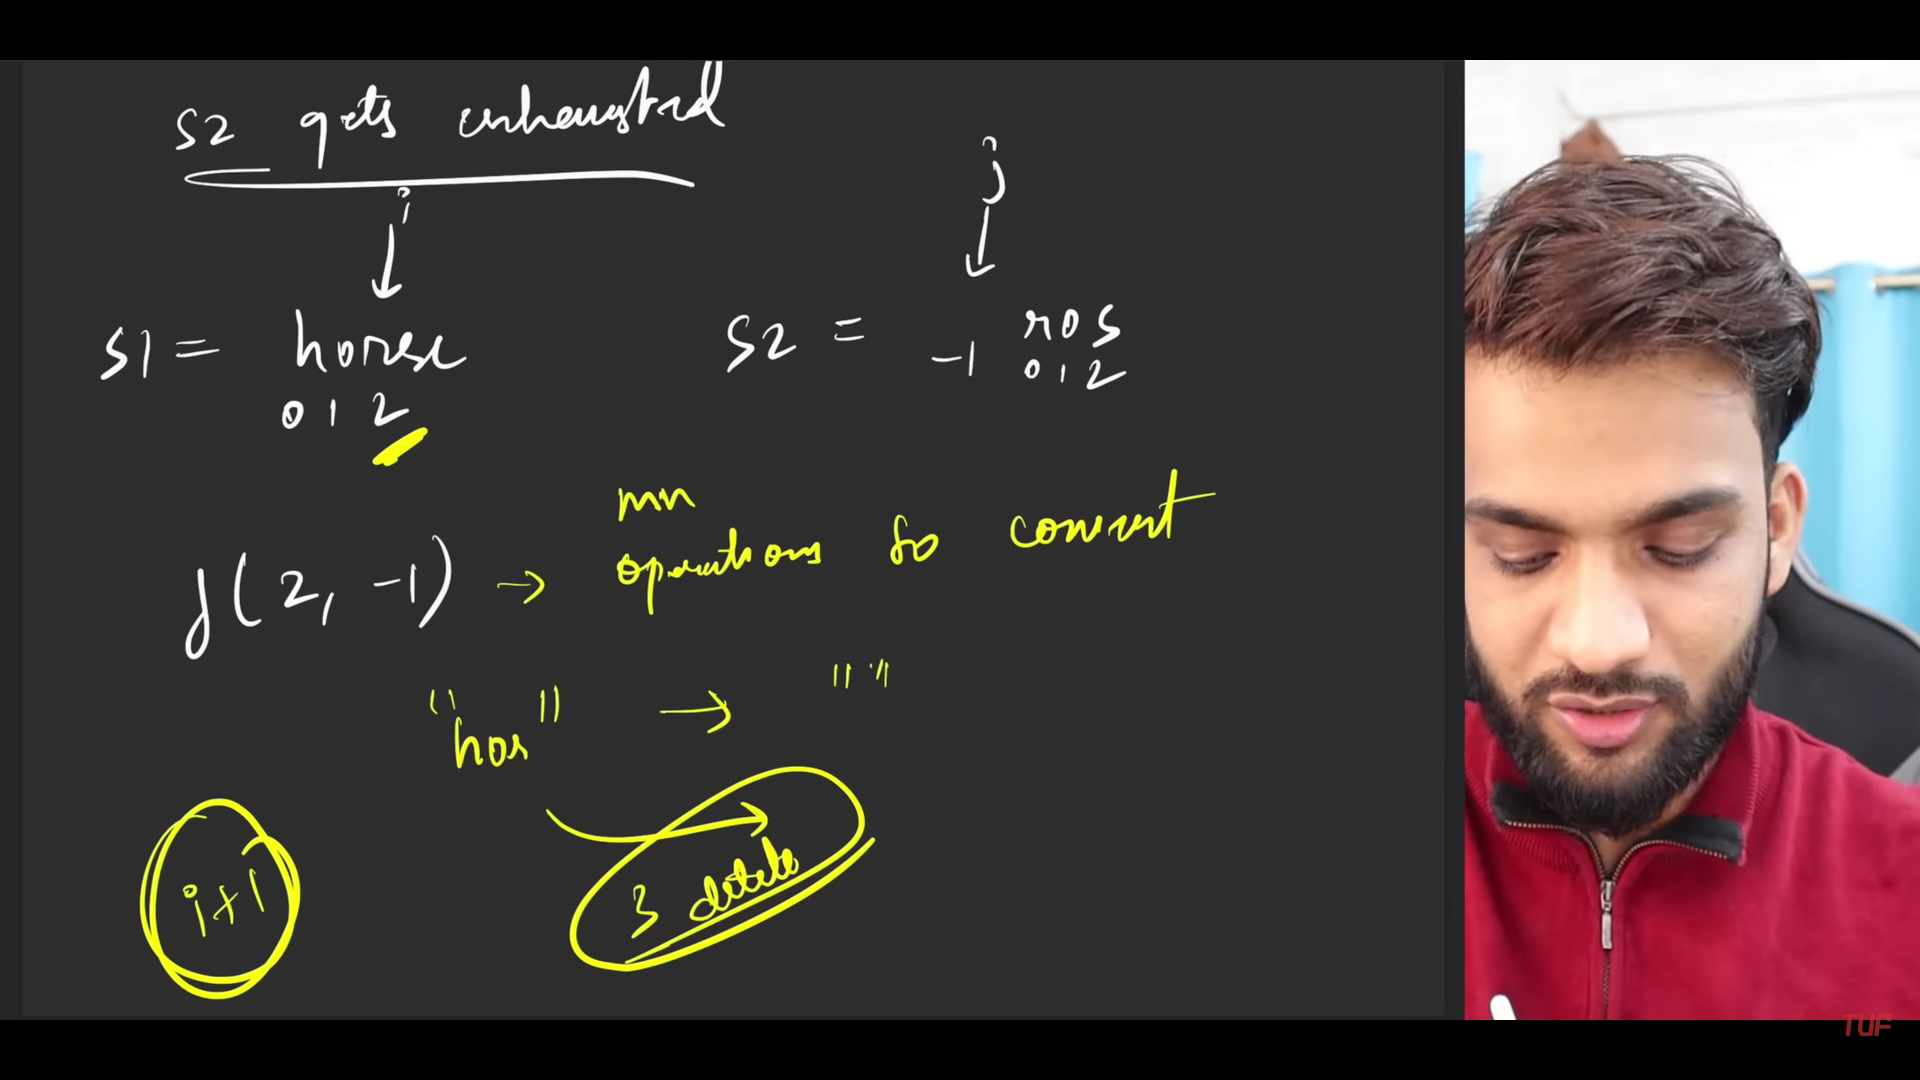 S2 gets exhausted
i
j
S1 = horse
S2 = -1 ros
0 1 2
0 1 2
f(2, -1) → min operations to convert
"hor" → " "
3 delete
i+1
TUF